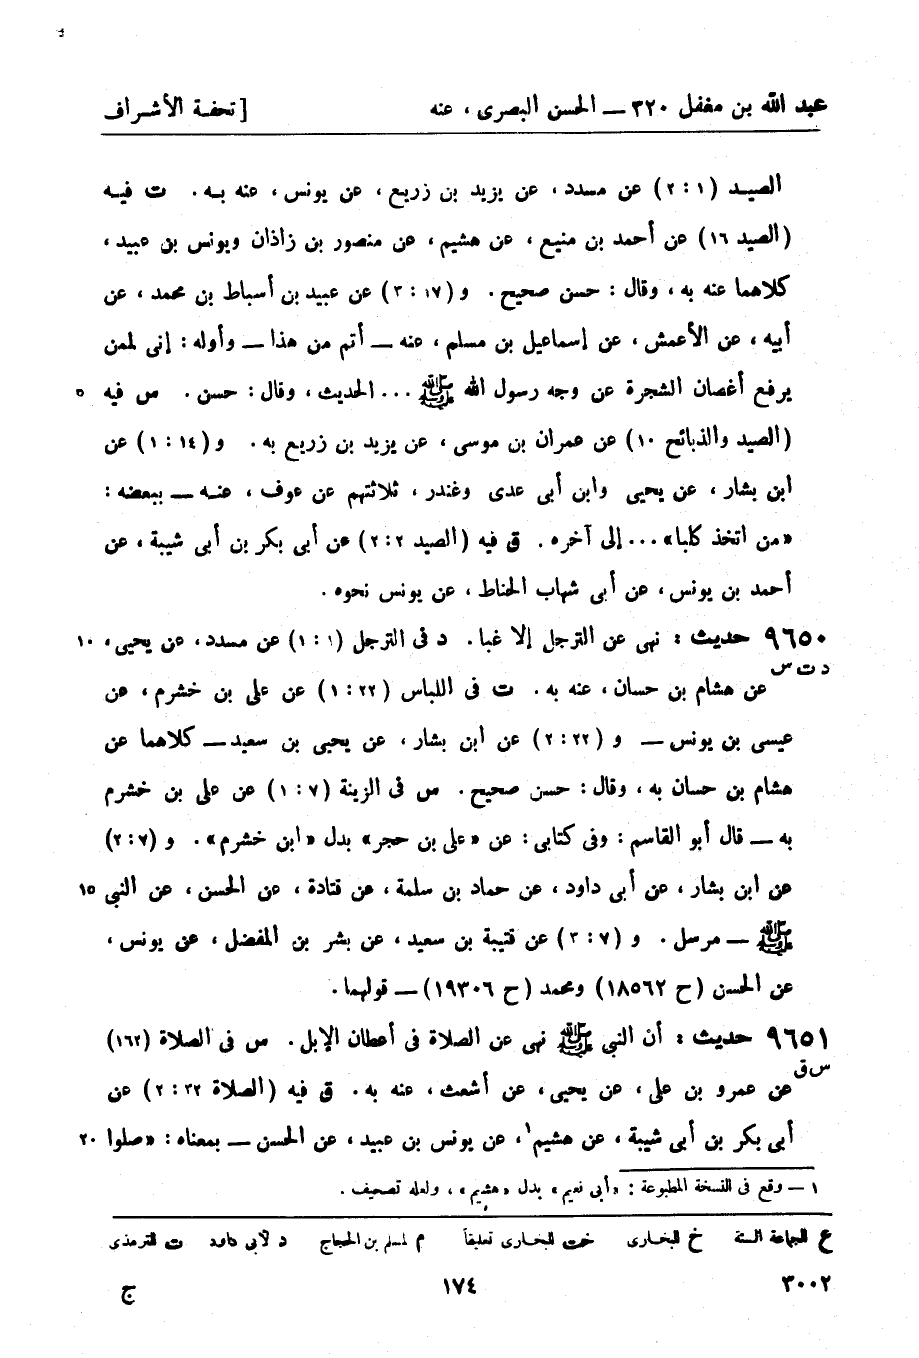 عبد الله بن مغفل ٣٢٠ ــ الحسن البصرى ، عنه [ تحفة الأشراف
الصيد (٢:١) عن مسدد، عن يزيد بن زريع، عن يونس، عنه به. ت فيه
(الصيد ١٦) عن أحمد بن منيع، عن هشيم، عن منصور بن زاذان ويونس بن عبيد،
كلاهما عنه به، وقال: حسن صحيح. و(٣:١٧) عن عبيد بن أسباط بن محمد، عن
أبيه، عن الأعمش، عن إسماعيل بن مسلم، عنه ــ أتم من هذا ــ وأوله: إنى لمن
يرفع أغصان الشجرة عن وجه رسول الله ﷺ ... الحديث، وقال: حسن. س فيه ٥
(الصيد والذبائح ١٠) عن عمران بن موسى، عن يزيد بن زريع به. و(١:١٤) عن
ابن بشار، عن يحيى وابن أبى عدى وغندر، ثلاثتهم عن عوف، عنه ــ ببعضه:
«من اتخذ كلبا» ... إلى آخره. ق فيه (الصيد ٢:٢) عن أبى بكر بن أبى شيبة، عن
أحمد بن يونس، عن أبى شهاب الحناط، عن يونس نحوه.
٩٦٥٠ حديث: نهى عن الترجل إلا غبا. د فى الترجل (١:١) عن مسدد، عن يحيى، ١٠
د ت س
عن هشام بن حسان، عنه به. ت فى اللباس (١:٢٢) عن على بن خشرم، عن
عيسى بن يونس ــ و (٢:٢٢) عن ابن بشار، عن يحيى بن سعيد ــ كلاهما عن
هشام بن حسان به، وقال: حسن صحيح. س فى الزينة (١:٧) عن على بن خشرم
به ــ قال أبو القاسم: وفى كتابى: عن «على بن حجر» بدل «ابن خشرم». و (٢:٧)
عن ابن بشار، عن أبى داود، عن حماد بن سلمة، عن قتادة، عن الحسن، عن النبى ١٥
ﷺ ــ مرسل. و (٣:٧) عن قتيبة بن سعيد، عن بشر بن المفضل، عن يونس،
عن الحسن (ح ١٨٥٦٢) ومحمد (ح ١٩٣٠٦) ــ قولهما.
٩٦٥١ حديث: أن النبى ﷺ نهى عن الصلاة فى أعطان الإبل. س فى الصلاة (١٦٢)
س ق
عن عمرو بن على، عن يحيى، عن أشعث، عنه به. ق فيه (الصلاة ٢:٣٢) عن
أبى بكر بن أبى شيبة، عن هشيم١، عن يونس بن عبيد، عن الحسن ــ بمعناه: «صلوا ٢٠
١ ــ وقع فى النسخة المطبوعة: «أبى نعيم» بدل «هشيم»، ولعله تصحيف.
ع للجماعة الستة خ للبخارى خت للبخارى تعليقاً م لمسلم بن الحجاج د لأبى داود ت للترمذى
٣٠٠٢ ١٧٤ ج